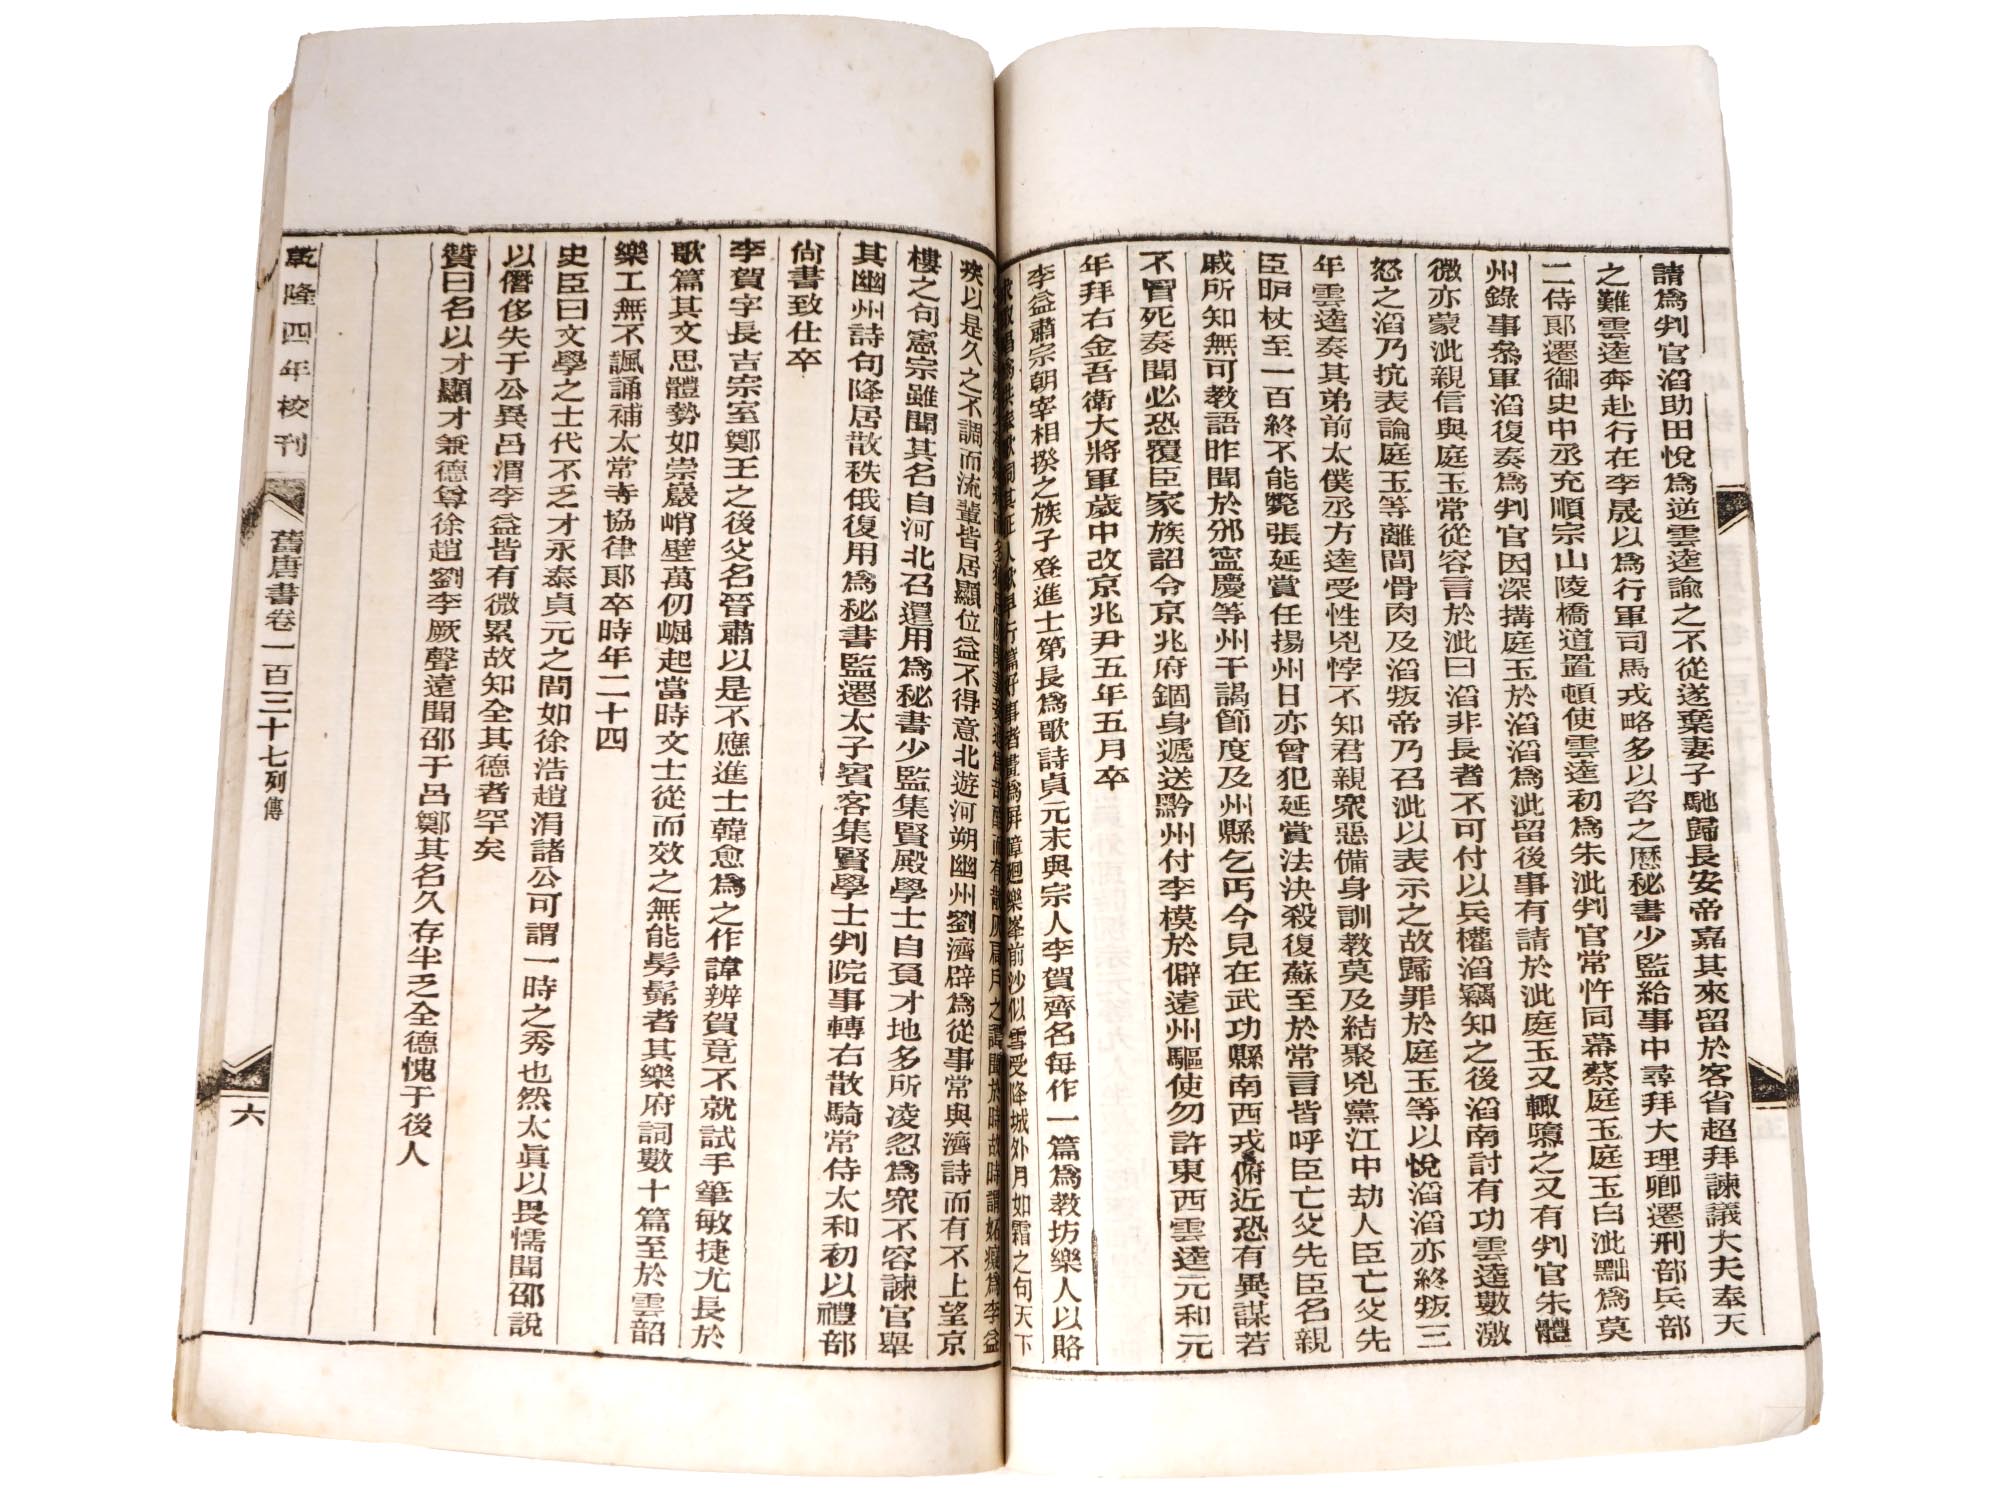 請爲判官滔助田悅爲逆雲逵諭之不從遂棄妻子馳歸長安帝嘉其來留於客省超拜諫議大夫奉天
之難雲逵奔赴行在李晟以爲行軍司馬戎略多以咨之歷秘書少監給事中尋拜大理卿遷刑部兵部
二侍郞遷御史中丞充順宗山陵橋道置頓使雲逵初爲朱泚判官常忤同幕蔡庭玉庭玉白泚黜爲莫
州錄事參軍滔復奏爲判官因深搆庭玉於滔滔爲泚留後事有請於泚庭玉又輙隳之又有判官朱體
微亦蒙泚親信與庭玉常從容言於泚曰滔非長者不可付以兵權滔竊知之後滔南討有功雲逵數激
怒之滔乃抗表論庭玉等離間骨肉及滔叛帝乃召泚以表示之故歸罪於庭玉等以悅滔滔亦終叛三
年雲逵奏其弟前太僕丞方逵受性兇悖不知君親衆惡備身訓教莫及結聚兇黨江中劫人臣亡父先
臣昈杖至一百終不能斃張延賞任揚州日亦曾犯延賞法決殺復蘇至於常言皆呼臣亡父先臣名親
戚所知無可教語昨聞於邠寧慶等州干謁節度及州縣乞丐今見在武功縣南西戎俯近恐有異謀若
不冒死奏聞必恐覆臣家族詔令京兆府錮身遞送黔州付李模於僻遠州驅使勿許東西雲逵元和元
年拜右金吾衛大將軍歲中改京兆尹五年五月卒
李益肅宗朝宰相揆之族子登進士第長爲歌詩貞元末與宗人李賀齊名每作一篇爲教坊樂人以賂
事者畫爲屛障廻樂峯前沙似雪受降城外月如霜之句天下
而有散灰扃戶之譚聞於時故時謂妬癡爲李益
疾以是久之不調而流輩皆居顯位益不得意北遊河朔幽州劉濟辟爲從事常與濟詩而有不上望京
樓之句憲宗雖聞其名自河北召還用爲秘書少監集賢殿學士自負才地多所凌忽爲衆不容諫官舉
其幽州詩句降居散秩俄復用爲秘書監遷太子賓客集賢學士判院事轉右散騎常侍太和初以禮部
尙書致仕卒
李賀字長吉宗室鄭王之後父名晉肅以是不應進士韓愈爲之作諱辨賀竟不就試手筆敏捷尤長於
歌篇其文思體勢如崇巖峭壁萬仞崛起當時文士從而效之無能髣髴者其樂府詞數十篇至於雲韶
樂工無不諷誦補太常寺協律郞卒時年二十四
史臣曰文學之士代不乏才永泰貞元之間如徐浩趙涓諸公可謂一時之秀也然太眞以畏懦聞邵說
以僭侈失于公異呂渭李益皆有微累故知全其德者罕矣
贊曰名以才顯才兼德尊徐趙劉李厥聲遠聞邵于呂鄭其名久存半乏全德愧于後人
乾隆四年校刊
舊唐書卷一百三十七列傳
六